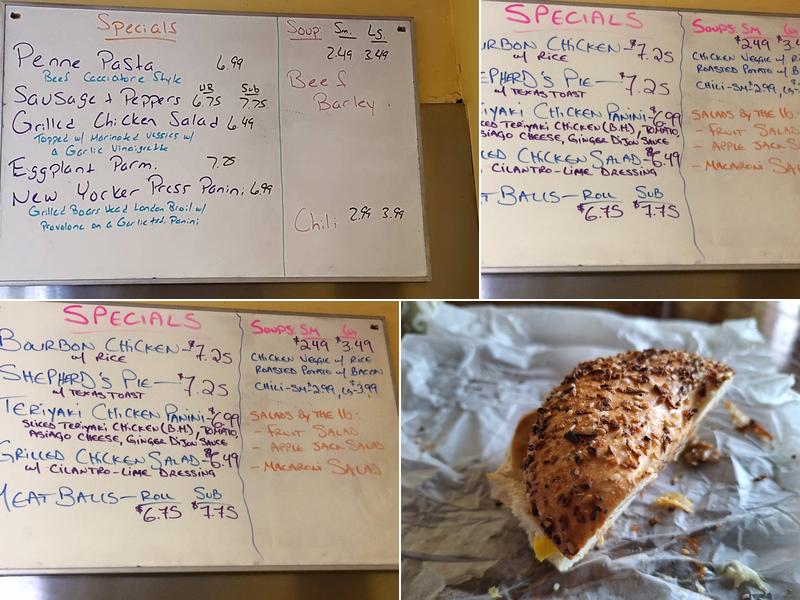 Specials
Penne Pasta 6.99
Beef Cacciatore Style
HR Sub
Sausage + Peppers 6.75 7.75
Grilled Chicken Salad 6.49
Topped w/ Marinated Veggies w/
a Garlic Vinaigrette
Eggplant Parm. 7.25
New Yorker Press Panini 6.99
Grilled Boars Head London Broil w/
Provolone on a Garlicted Panini
Soup Sm. Lg.
2.49 3.49
Beef
Barley
Chili 2.99 3.99
SPECIALS
URBON CHICKEN-$7.25
w/ RICE
EPHERD'S PIE-$7.25
w/ TEXAS TOAST
IYAKI CHICKEN PANINI-$6.99
CED TERIYAKI CHICKEN (B.H), TOMATO,
SIAGO CHEESE, GINGER DIJON SAUCE
LED CHICKEN SALAD-$6.49
CILANTRO-LIME DRESSING
AT BALLS- ROLL SUB
$6.75 $7.75
SOUPS: SM
$2.49 $3.4
CHICKEN VEGGIE w/ RI
ROASTED POTATO w/ B
CHILI-SM $2.99,
SALADS BY THE lb.:
- FRUIT SALAD
- APPLE JACK SA
- MACARONI SA
SPECIALS
BOURBON CHICKEN-$7.25
w/ RICE
SHEPHERD'S PIE-$7.25
w/ TEXAS TOAST
TERIYAKI CHICKEN PANINI-$6.99
SLICED TERIYAKI CHICKEN (B.H), TOMATO,
ASIAGO CHEESE, GINGER DIJON SAUCE
GRILLED CHICKEN SALAD-$6.49
w/ CILANTRO-LIME DRESSING
MEAT BALLS- ROLL SUB
$6.75 $7.75
SOUPS: SM LG
$2.49 $3.49
CHICKEN VEGGIE w/ RICE
ROASTED POTATO w/ BACON
CHILI-SM $2.99, LG-$3.99
SALADS BY THE lb.:
- FRUIT SALAD
- APPLE JACK SALAD
- MACARONI SALAD